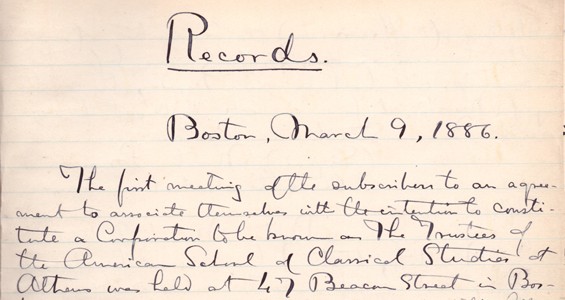 Records.
Boston, March 9, 1886.
The first meeting of the subscribers to an agree-
ment to associate themselves with the intention to consti-
tute a Corporation to be known as The Trustees of
the American School of Classical Studies at
Athens was held at 47 Beacon Street in Bos-